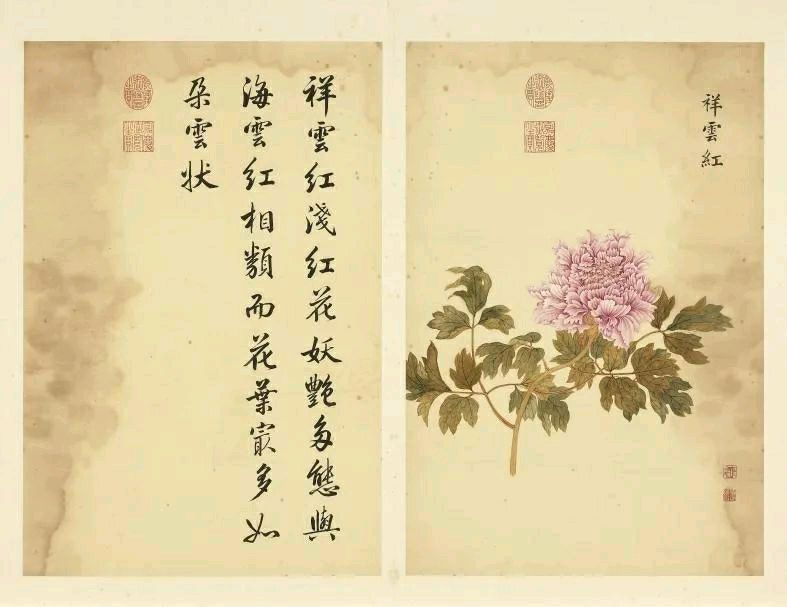 祥雲紅
祥雲紅淺紅花妖艷多態與
海雲紅相類而花葉㝡多如
朵雲狀